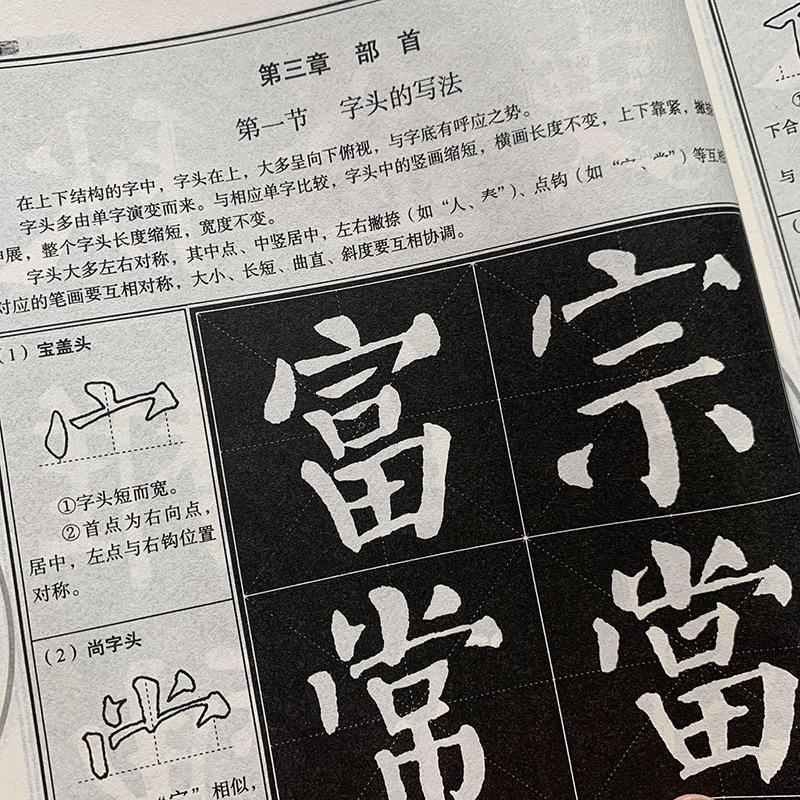 第三章 部首
第一节 字头的写法
在上下结构的字中，字头在上，大多呈向下俯视，与字底有呼应之势。
字头多由单字演变而来。与相应单字比较，字头中的竖画缩短，横画长度不变，上下靠紧，撇捺
伸展，整个字头长度缩短，宽度不变。
字头大多左右对称，其中点、中竖居中，左右撇捺（如“人、𡗗”）、点钩（如“宀、龸”）等互相
对应的笔画要互相对称，大小、长短、曲直、斜度要互相协调。
（1）宝盖头
宀
①字头短而宽。
②首点为右向点，
居中，左点与右钩位置
对称。
富 宗
（2）尚字头
龸
“宀”相似，
常 當
下合
与